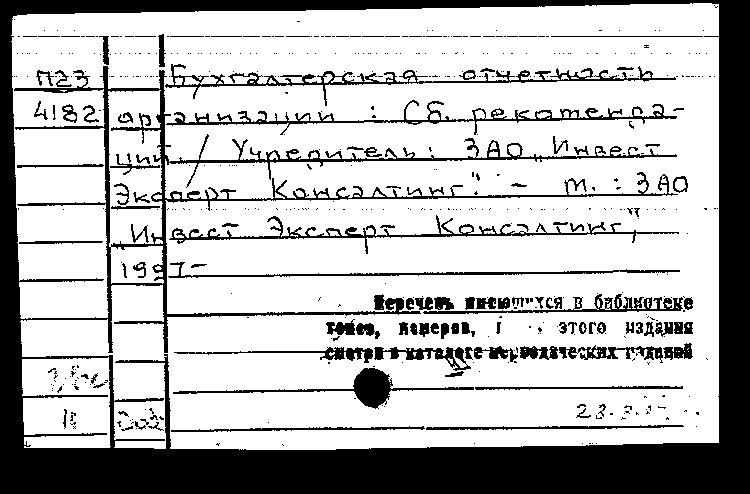 П23 Бухгалтерская отчетность
4182 организации : Сб. рекоменда-
ций / Учредитель: ЗАО „Инвест
Эксперт Консалтинг". - М. : ЗАО
„Инвест Эксперт Консалтинг",
1997-
Перечень имеющихся в библиотеке
томов, номеров, этого издания
смотри в каталоге периодических изданий